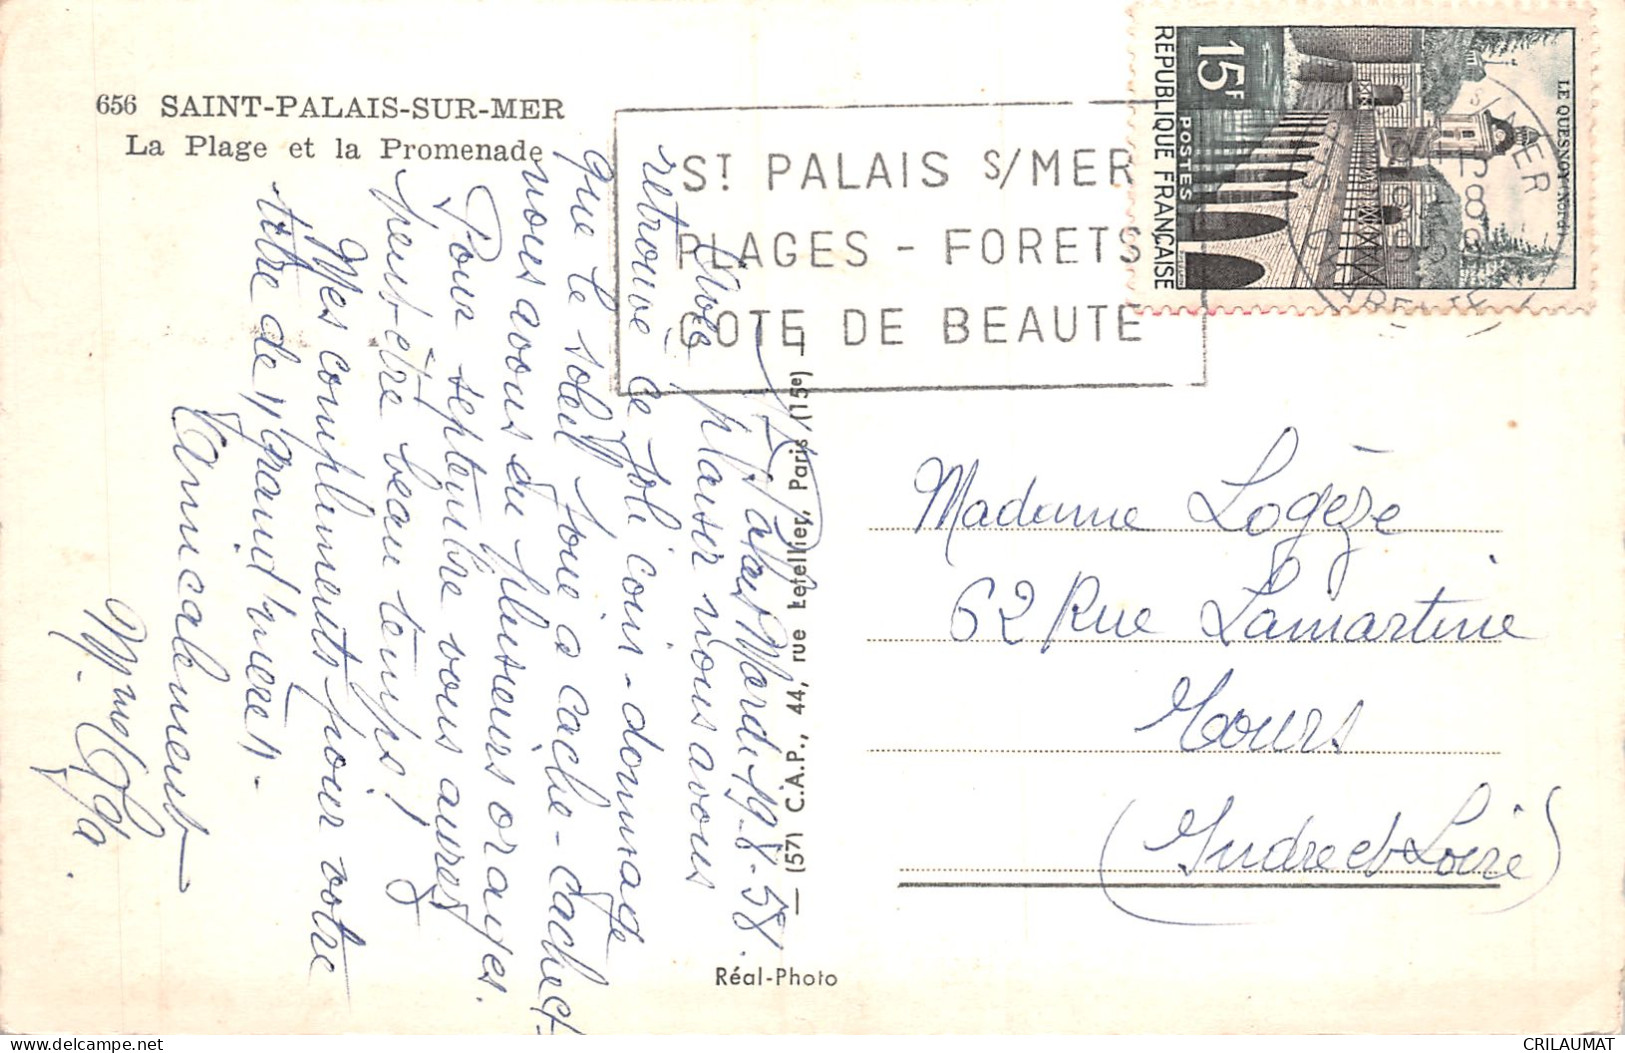 656 SAINT-PALAIS-SUR-MER
La Plage et la Promenade
ST PALAIS S/MER
PLAGES - FORETS
COTE DE BEAUTE
15F
POSTES
REPUBLIQUE FRANÇAISE
LE QUESNOY (NORD)
St Palais Mardi 19-8-58.
Avec plaisir nous avons
retrouvé ce joli coin - dommage
que le soleil joue à cache-cache et
nous avons eu plusieurs orages.
Pour septembre vous aurez
peut-être beau temps !
Mes compliments pour votre
titre de "grand'mère".
Amicalement
(57) C.A.P., 44, rue Letellier, Paris (15e)
Réal-Photo
Madame Logèze
62 Rue Lamartine
Tours
(Indre et Loire)
CRILAUMAT